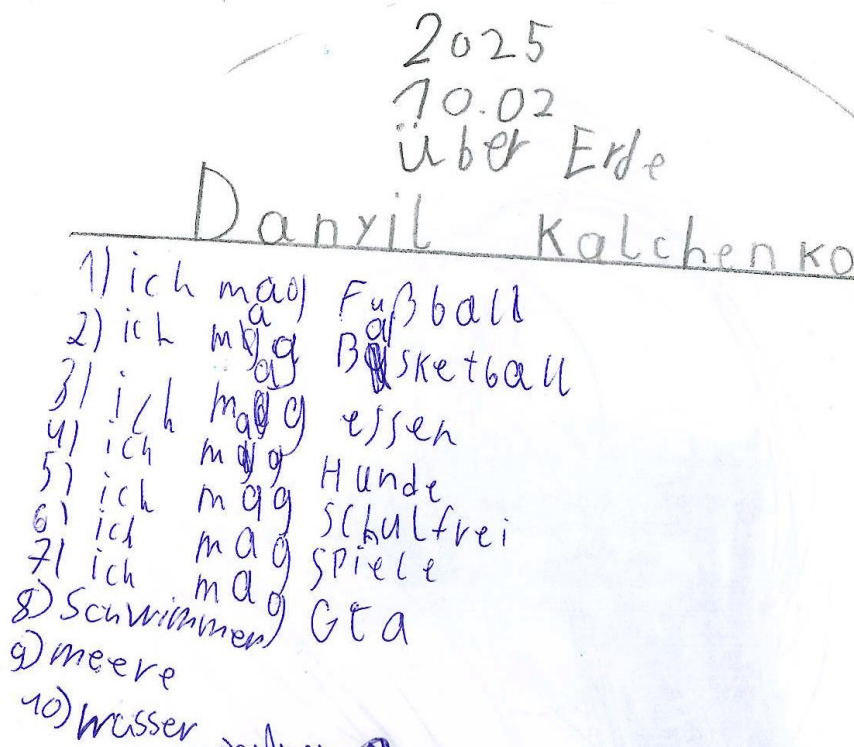 2025
10.02
über Erde
Danyil Kalchenko
1) ich mag Fußball
2) ich mag Basketball
3) ich mag essen
4) ich mag Hunde
5) ich mag Schulfrei
6) ich mag Spiele
7) ich mag Gta
8) Schwimmen
9) meere
10) wasser